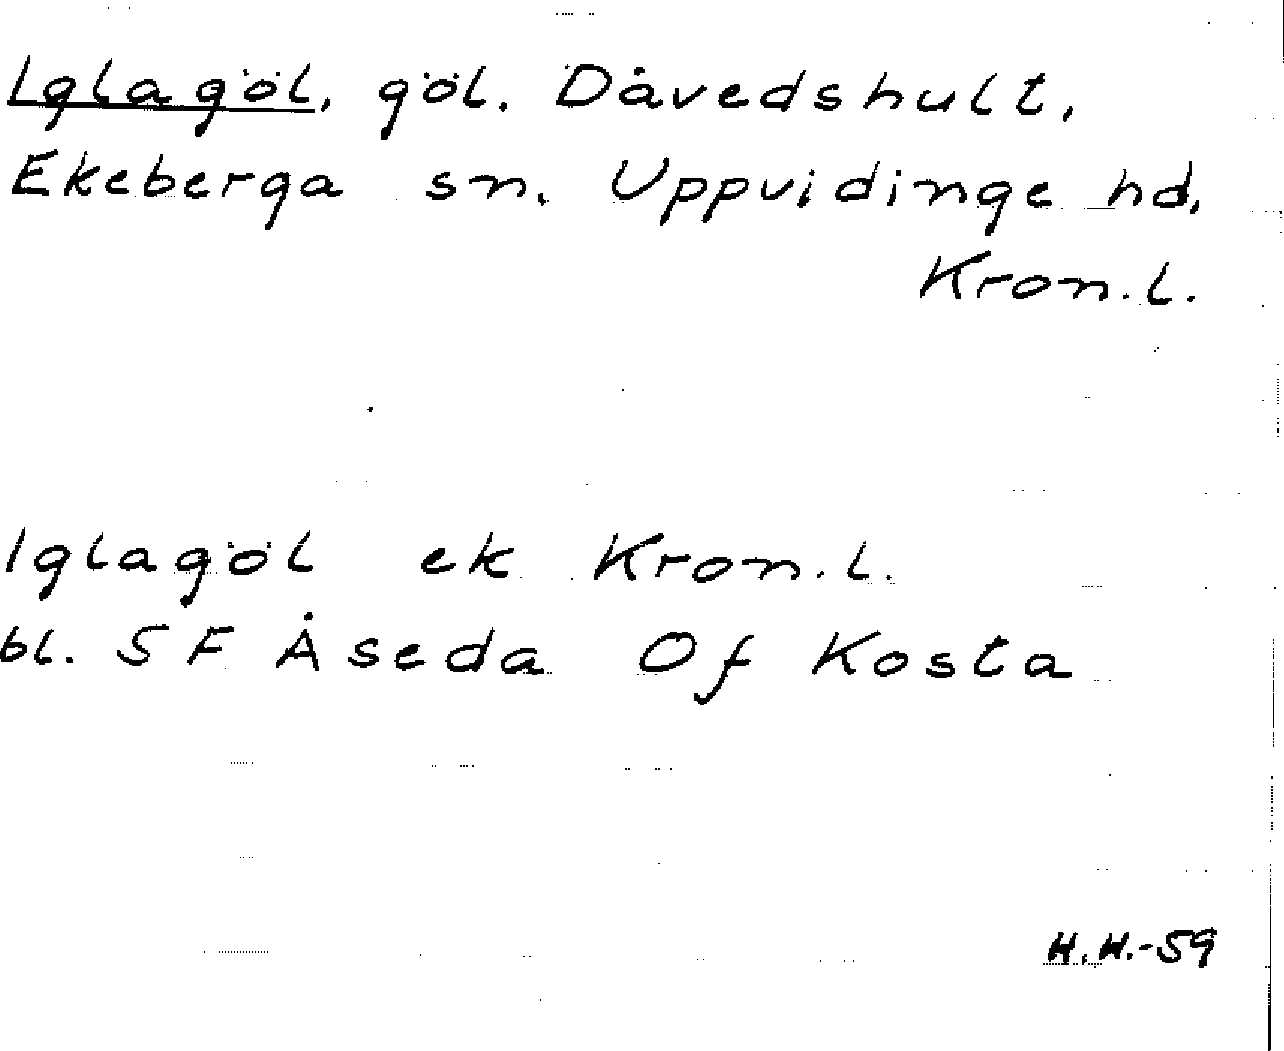 Iglagöl, göl. Dåvedshult,
Ekeberga sn. Uppvidinge hd,
Kron.l.
Iglagöl ek Kron.l.
bl. SF Åseda Of Kosta
H.H.-59